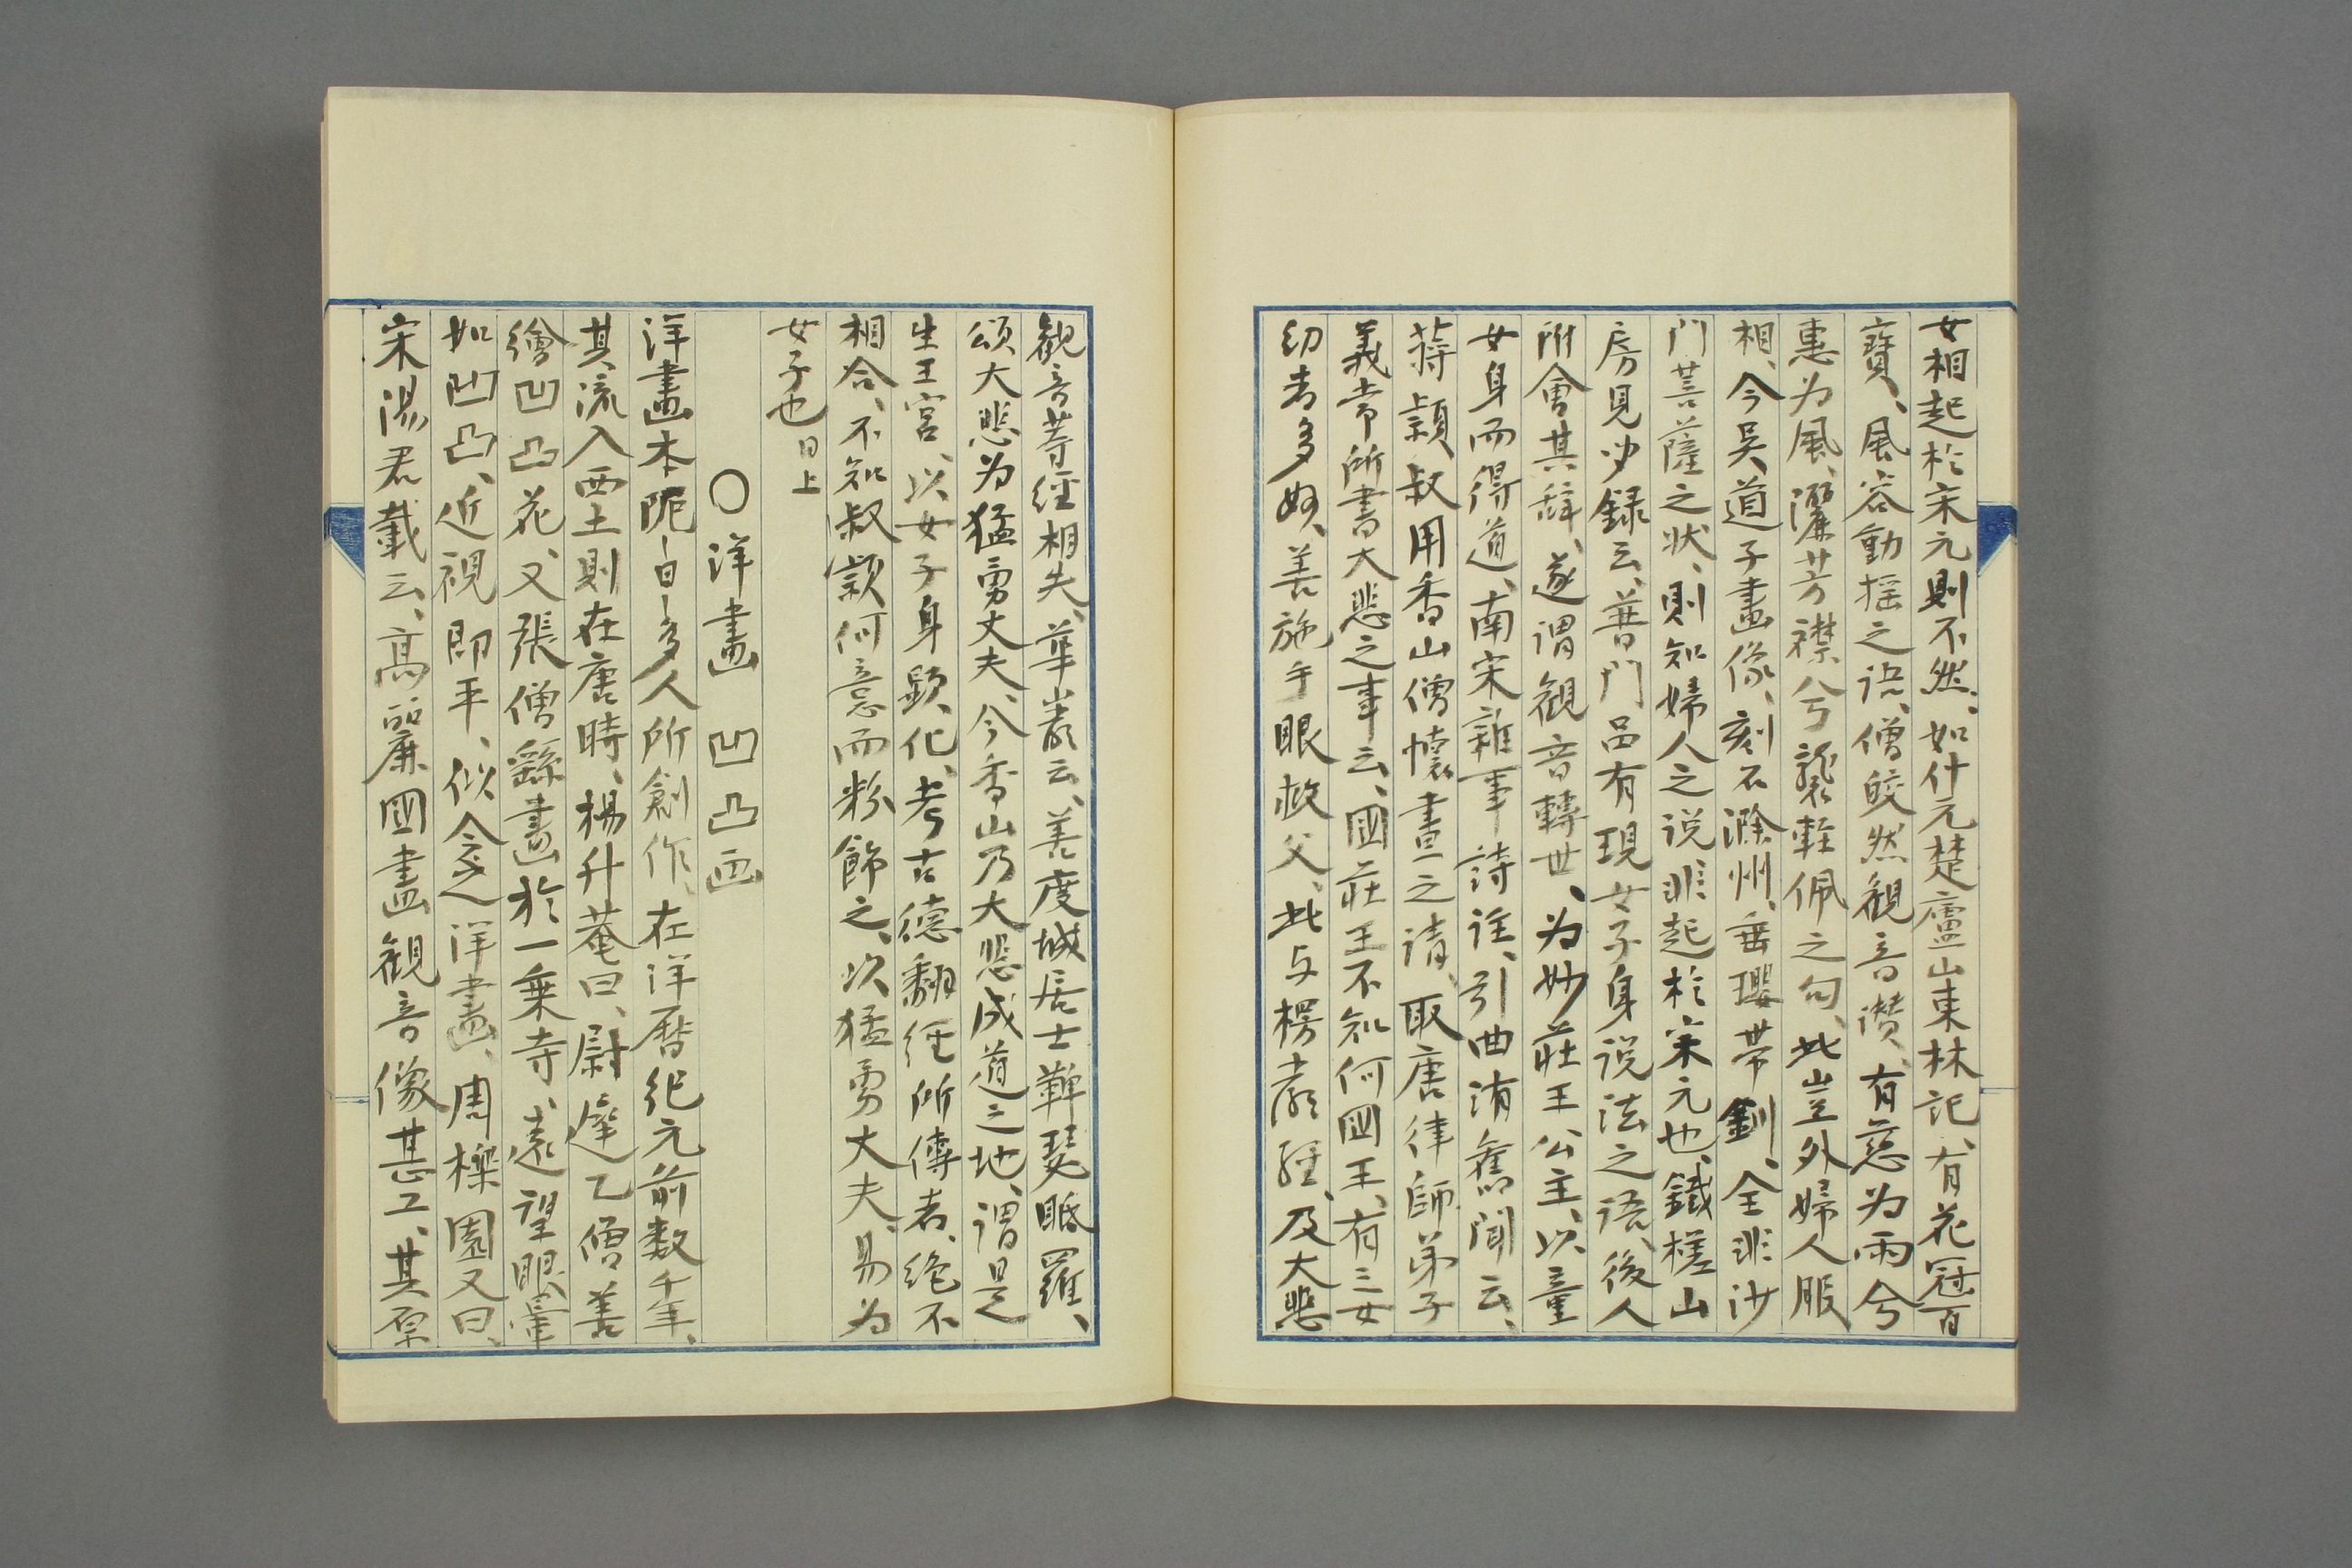 女相起於宋元則不然、如什元楚廬山東林記、有花冠百
寶、風容動揺之語、僧皎然観音讃、有慈为雨兮
惠为風、灑芳襟兮襲輕佩之句、此豈外婦人服
相、今吴道子畫像、刻石滁州、垂瓔帯釧、全非沙
門菩薩之状、則知婦人之説非起於宋元也、鐵槎山
房見聞録云、普門品有現女子身説法之語、後人
附會其辞、遂谓観音轉世、为妙莊王公主、以童
女身而得道、南宋雜事詩註、引曲洧舊聞云、
蒋穎叔用香山僧懐晝之请、取唐律師弟子
義常所書大悲之事云、國莊王不知何國王、有三女
幼者多妙、善施手眼救父、此与楞嚴経、及大悲
観音等経相失、華嚴云、善度城居士鞞瑟眂羅、
頌大悲为猛勇丈夫、今香山乃大悲成道之地、谓是
生王宮、以女子身顕化、考古德翻经所傳者、絶不
相合、不知叔颖何意而粉飾之、以猛勇大夫、易为
女子也 日上
〇洋畫 凹凸画
洋畫本陁白多人所創作、在洋暦紀元前数千年、
其流入西土則在唐時、楊升菴曰、尉遲乙僧善
繪凹凸花、又張僧繇畫於一乗寺、遠望眼暈
如凹凸、近視即平、似今之洋畫、周櫟園又曰、
宋湯君載云、高麗國畫観音像甚工、其原